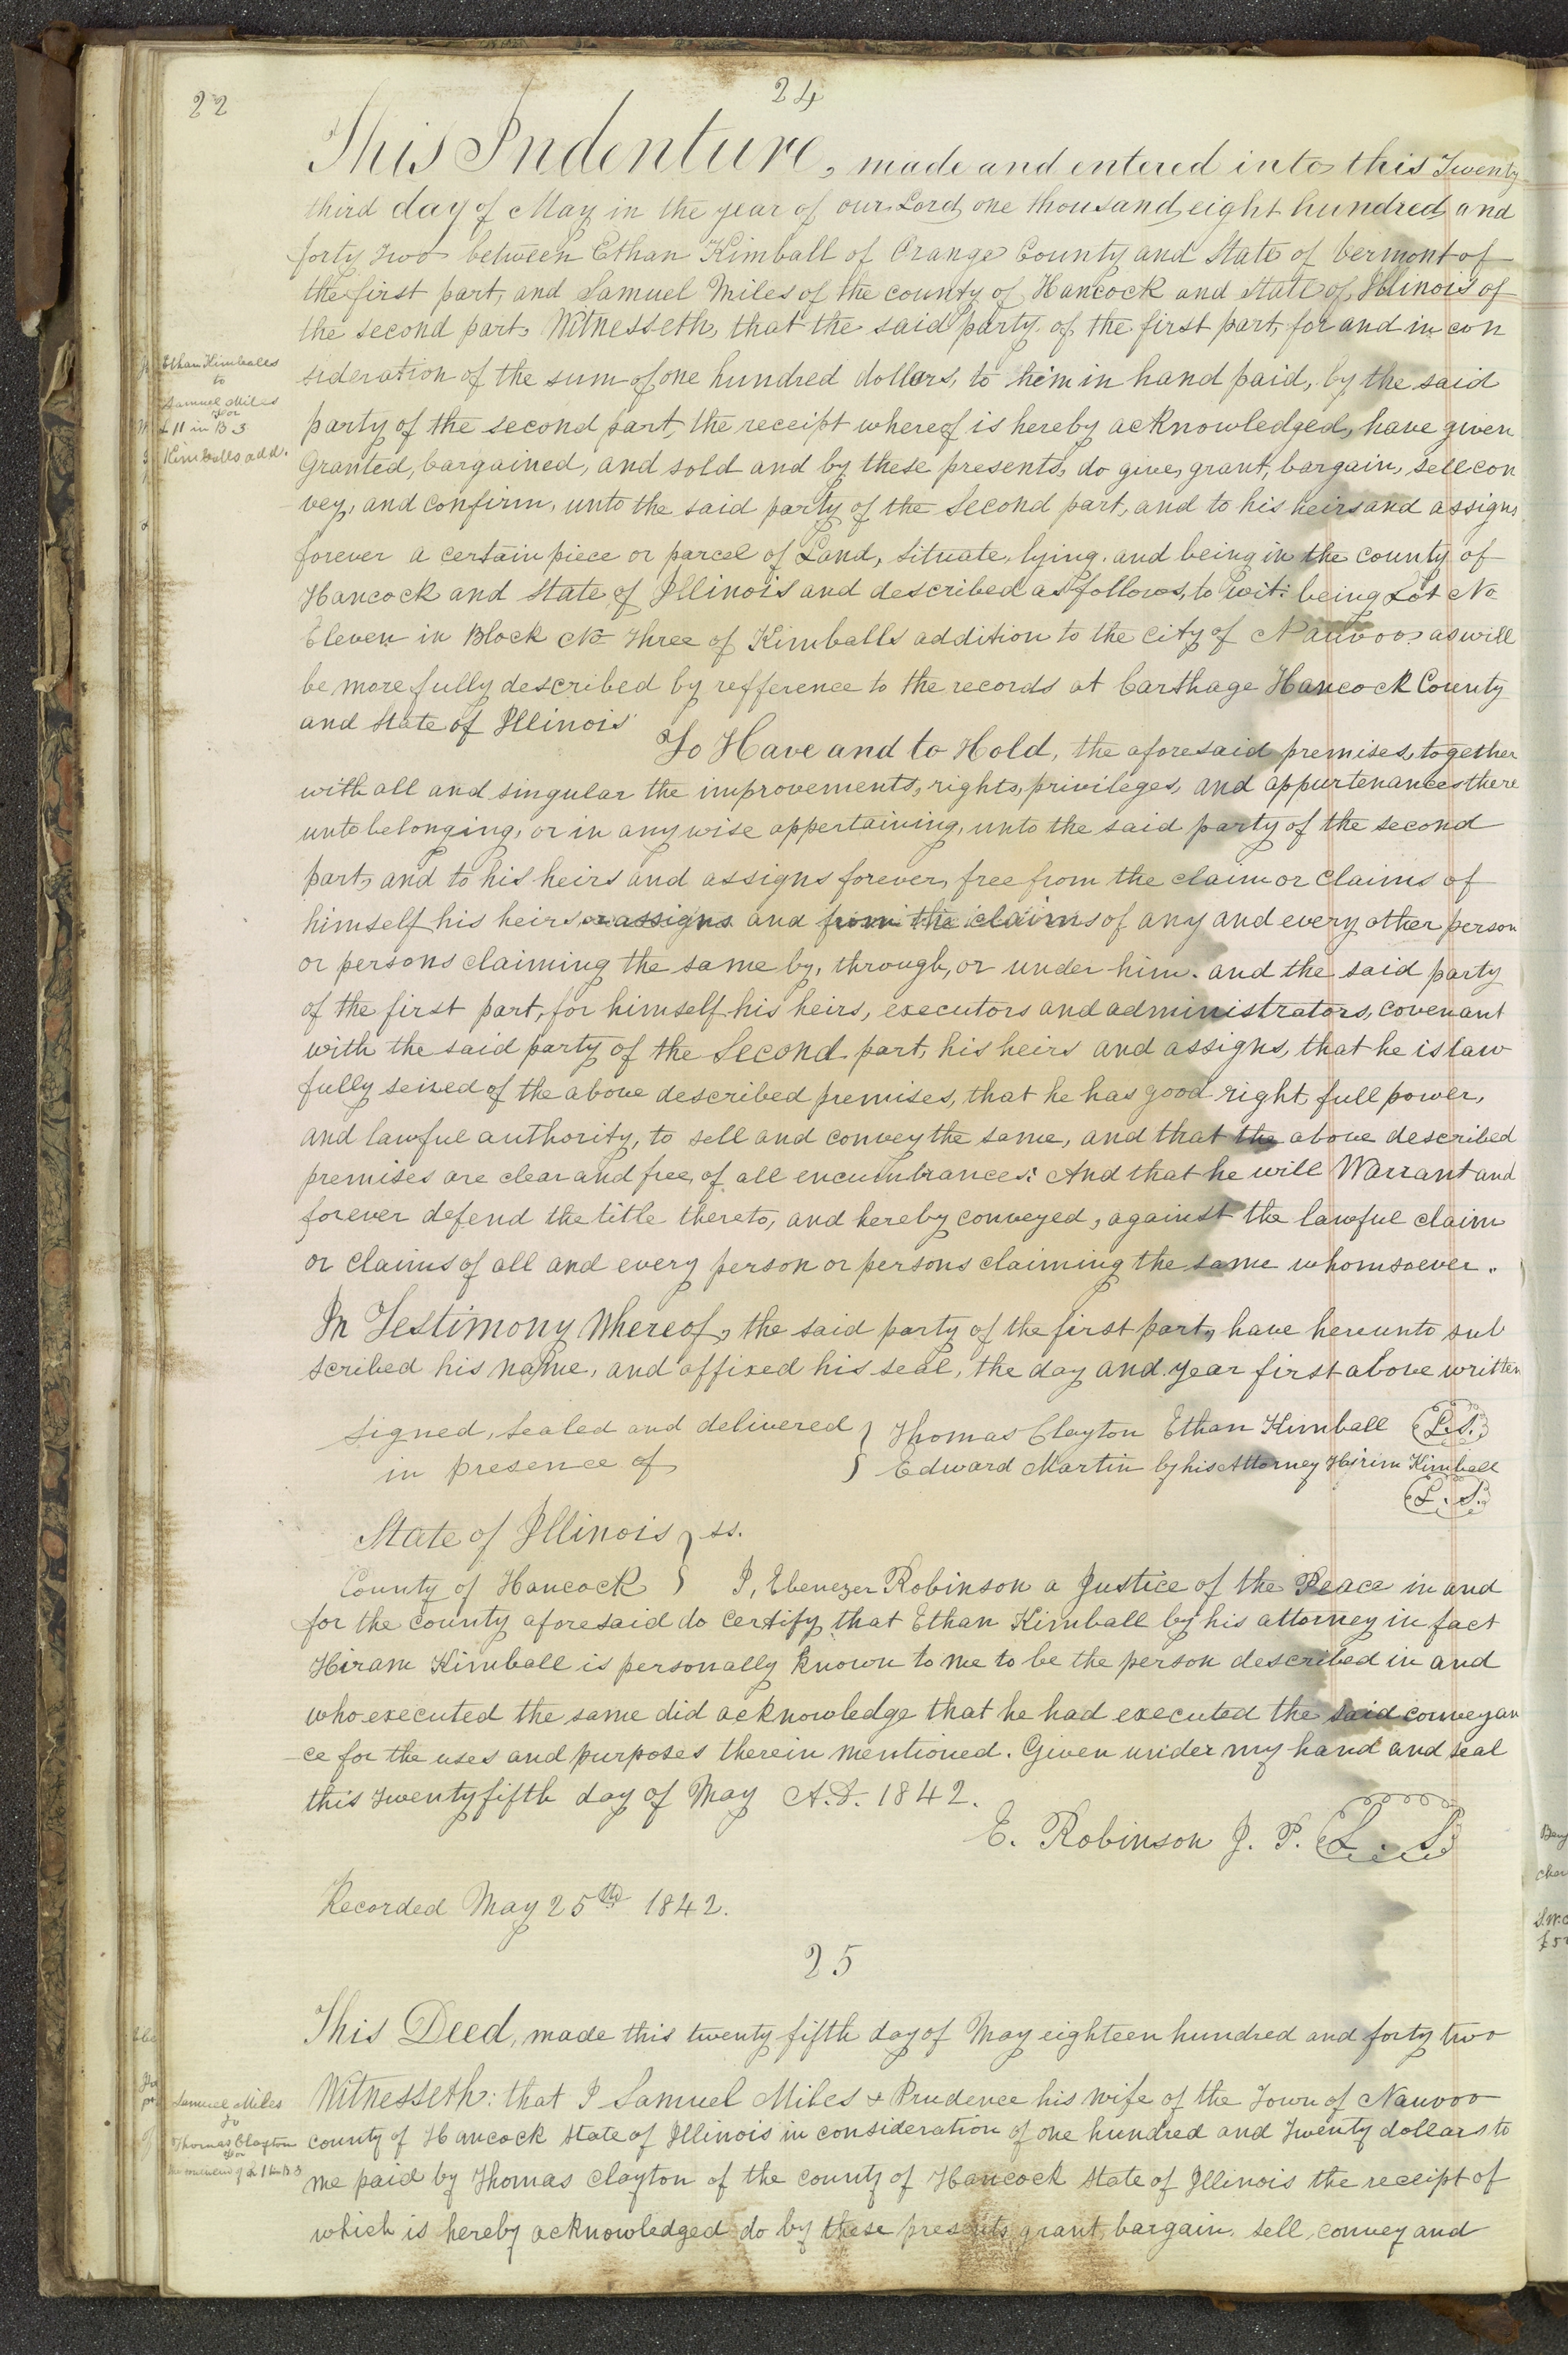 22
24
This Indenture, made and entered into this Twenty
third day of May in the year of our Lord one thousand eight hundred and
forty two between Ethan Kimball of Orange County and State of Vermont of
the first part, and Samuel Miles of the county of Hancock and State of Illinois of
the second part, Witnesseth, that the said party of the first part, for and in con
Ethan Kimballs
to
Samuel Miles
for
L 11 in B 3
Kimballs add.
sideration of the sum of one hundred dollars, to him in hand paid, by the said
party of the second part, the receipt whereof is hereby acknowledged, have given
Granted, bargained, and sold and by these presents, do give, grant, bargain, sell con
vey, and confirm, unto the said party of the Second part, and to his heirs and assigns
forever a certain piece or parcel of Land, situate, lying, and being in the county of
Hancock and State of Illinois and described as follows, to wit: being Lot No
Eleven in Block No Three of Kimballs addition to the city of Nauvoo as will
be more fully described by refference to the records at Carthage Hancock County
and State of Illinois
To Have and to Hold, the aforesaid premises, together
with all and singular the improvements, rights, privileges, and appurtenances there
unto belonging, or in any wise appertaining, unto the said party of the second
part, and to his heirs and assigns forever, free from the claim or claims of
himself his heirs or assigns and from the claims of any and every other person
or persons claiming the same by, through, or under him. and the said party
of the first part, for himself his heirs, executors and administrators, covenant
with the said party of the Second part, his heirs and assigns, that he is law
fully seized of the above described premises, that he has good right, full power,
and lawful authority, to sell and convey the same, and that the above described
premises are clear and free, of all encumbrances: And that he will Warrant and
forever defend the title thereto, and hereby conveyed, against the lawful claim
or claims of all and every person or persons claiming the same whomsoever.
In Testimony Whereof, the said party of the first part, have hereunto sub
scribed his name, and affixed his seal, the day and year first above written
Signed, Sealed and delivered } Thomas Clayton Ethan Kimball L.S.
in presence of } Edward Martin by his Attorney Hirim Kimball
L.S.
State of Illinois } ss.
County of Hancock } I, Ebenezer Robinson a Justice of the Peace in and
for the county aforesaid do certify that Ethan Kimball by his attorney in fact
Hiram Kimball is personally known to me to be the person described in and
who executed the same did acknowledge that he had executed the said conveyan
ce for the uses and purposes therein mentioned. Given under my hand and seal
this twenty fifth day of May A.D. 1842.
E. Robinson J. P. L.S.
Recorded May 25th 1842.
25
This Deed, made this twenty fifth day of May eighteen hundred and forty two
Witnesseth: that I Samuel Miles & Prudence his wife of the Town of Nauvoo
Samuel Miles
to
Thomas Clayton
for
county of Hancock State of Illinois in consideration of one hundred and Twenty dollars to
me paid by Thomas Clayton of the county of Hancock State of Illinois the receipt of
which is hereby acknowledged do by these presents, grant, bargain, sell, convey and